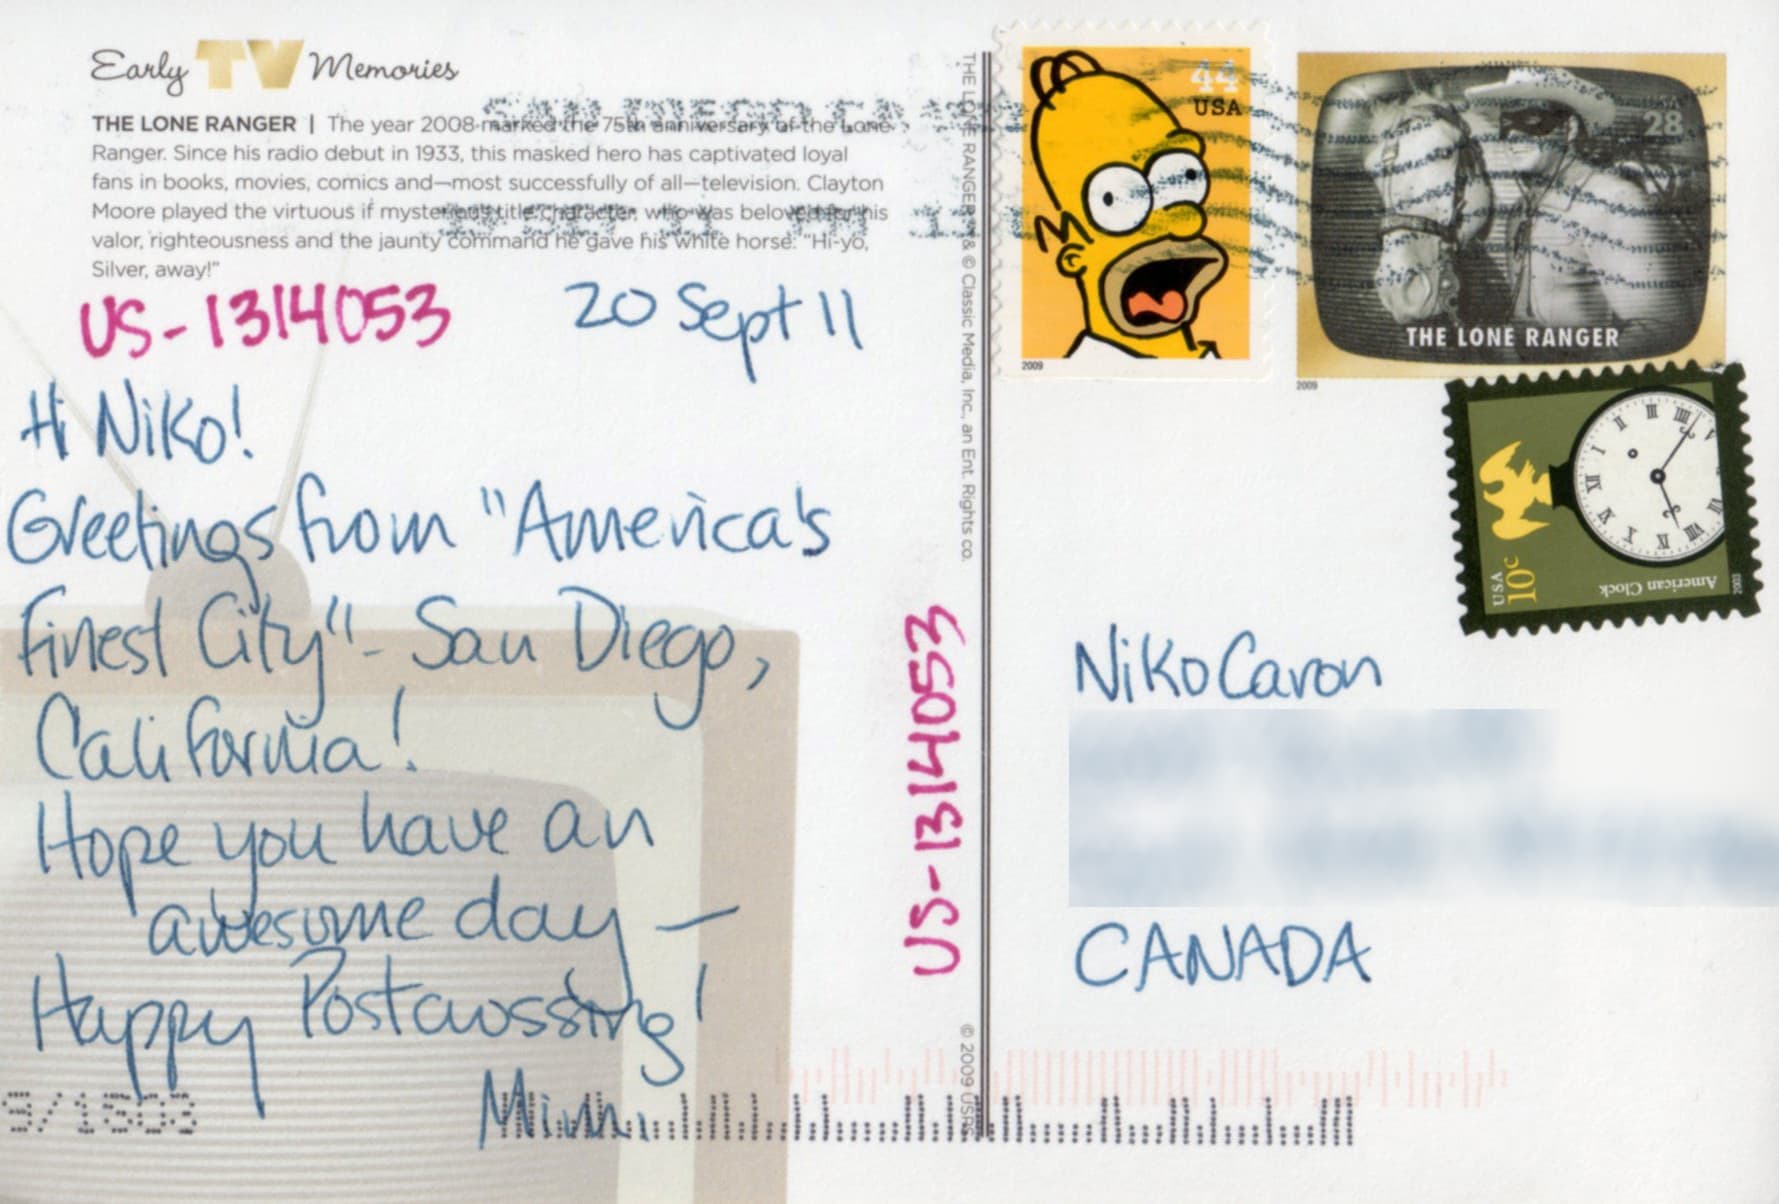 Early TV Memories
THE LONE RANGER | The year 2008 marked the 75th anniversary of the Lone
Ranger. Since his radio debut in 1933, this masked hero has captivated loyal
fans in books, movies, comics and—most successfully of all—television. Clayton
Moore played the virtuous if mysterious title character, who was beloved for his
valor, righteousness and the jaunty command he gave his white horse: "Hi-yo,
Silver, away!"
US-1314053
20 Sept 11
Hi Niko!
Greetings from "America's
Finest City" - San Diego,
California!
Hope you have an
awesome day —
Happy Postcrossing!
Mimi
THE LONE RANGER ® & © Classic Media, Inc., an Ent. Rights co.
US-1314053
© 2009 USPS
44
USA
2009
28
THE LONE RANGER
2009
USA
10c
American Clock
2003
Niko Caron
CANADA